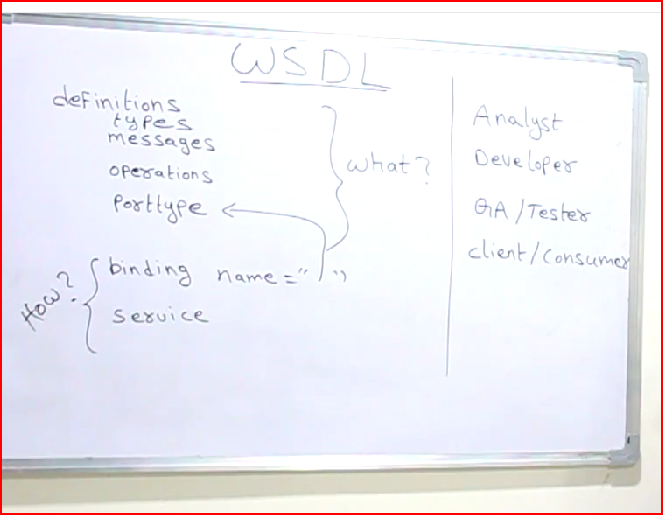 WSDL
definitions
types
messages
operations
Porttype
what?
How?
binding name = " "
service
Analyst
Developer
QA/Tester
client/Consumer